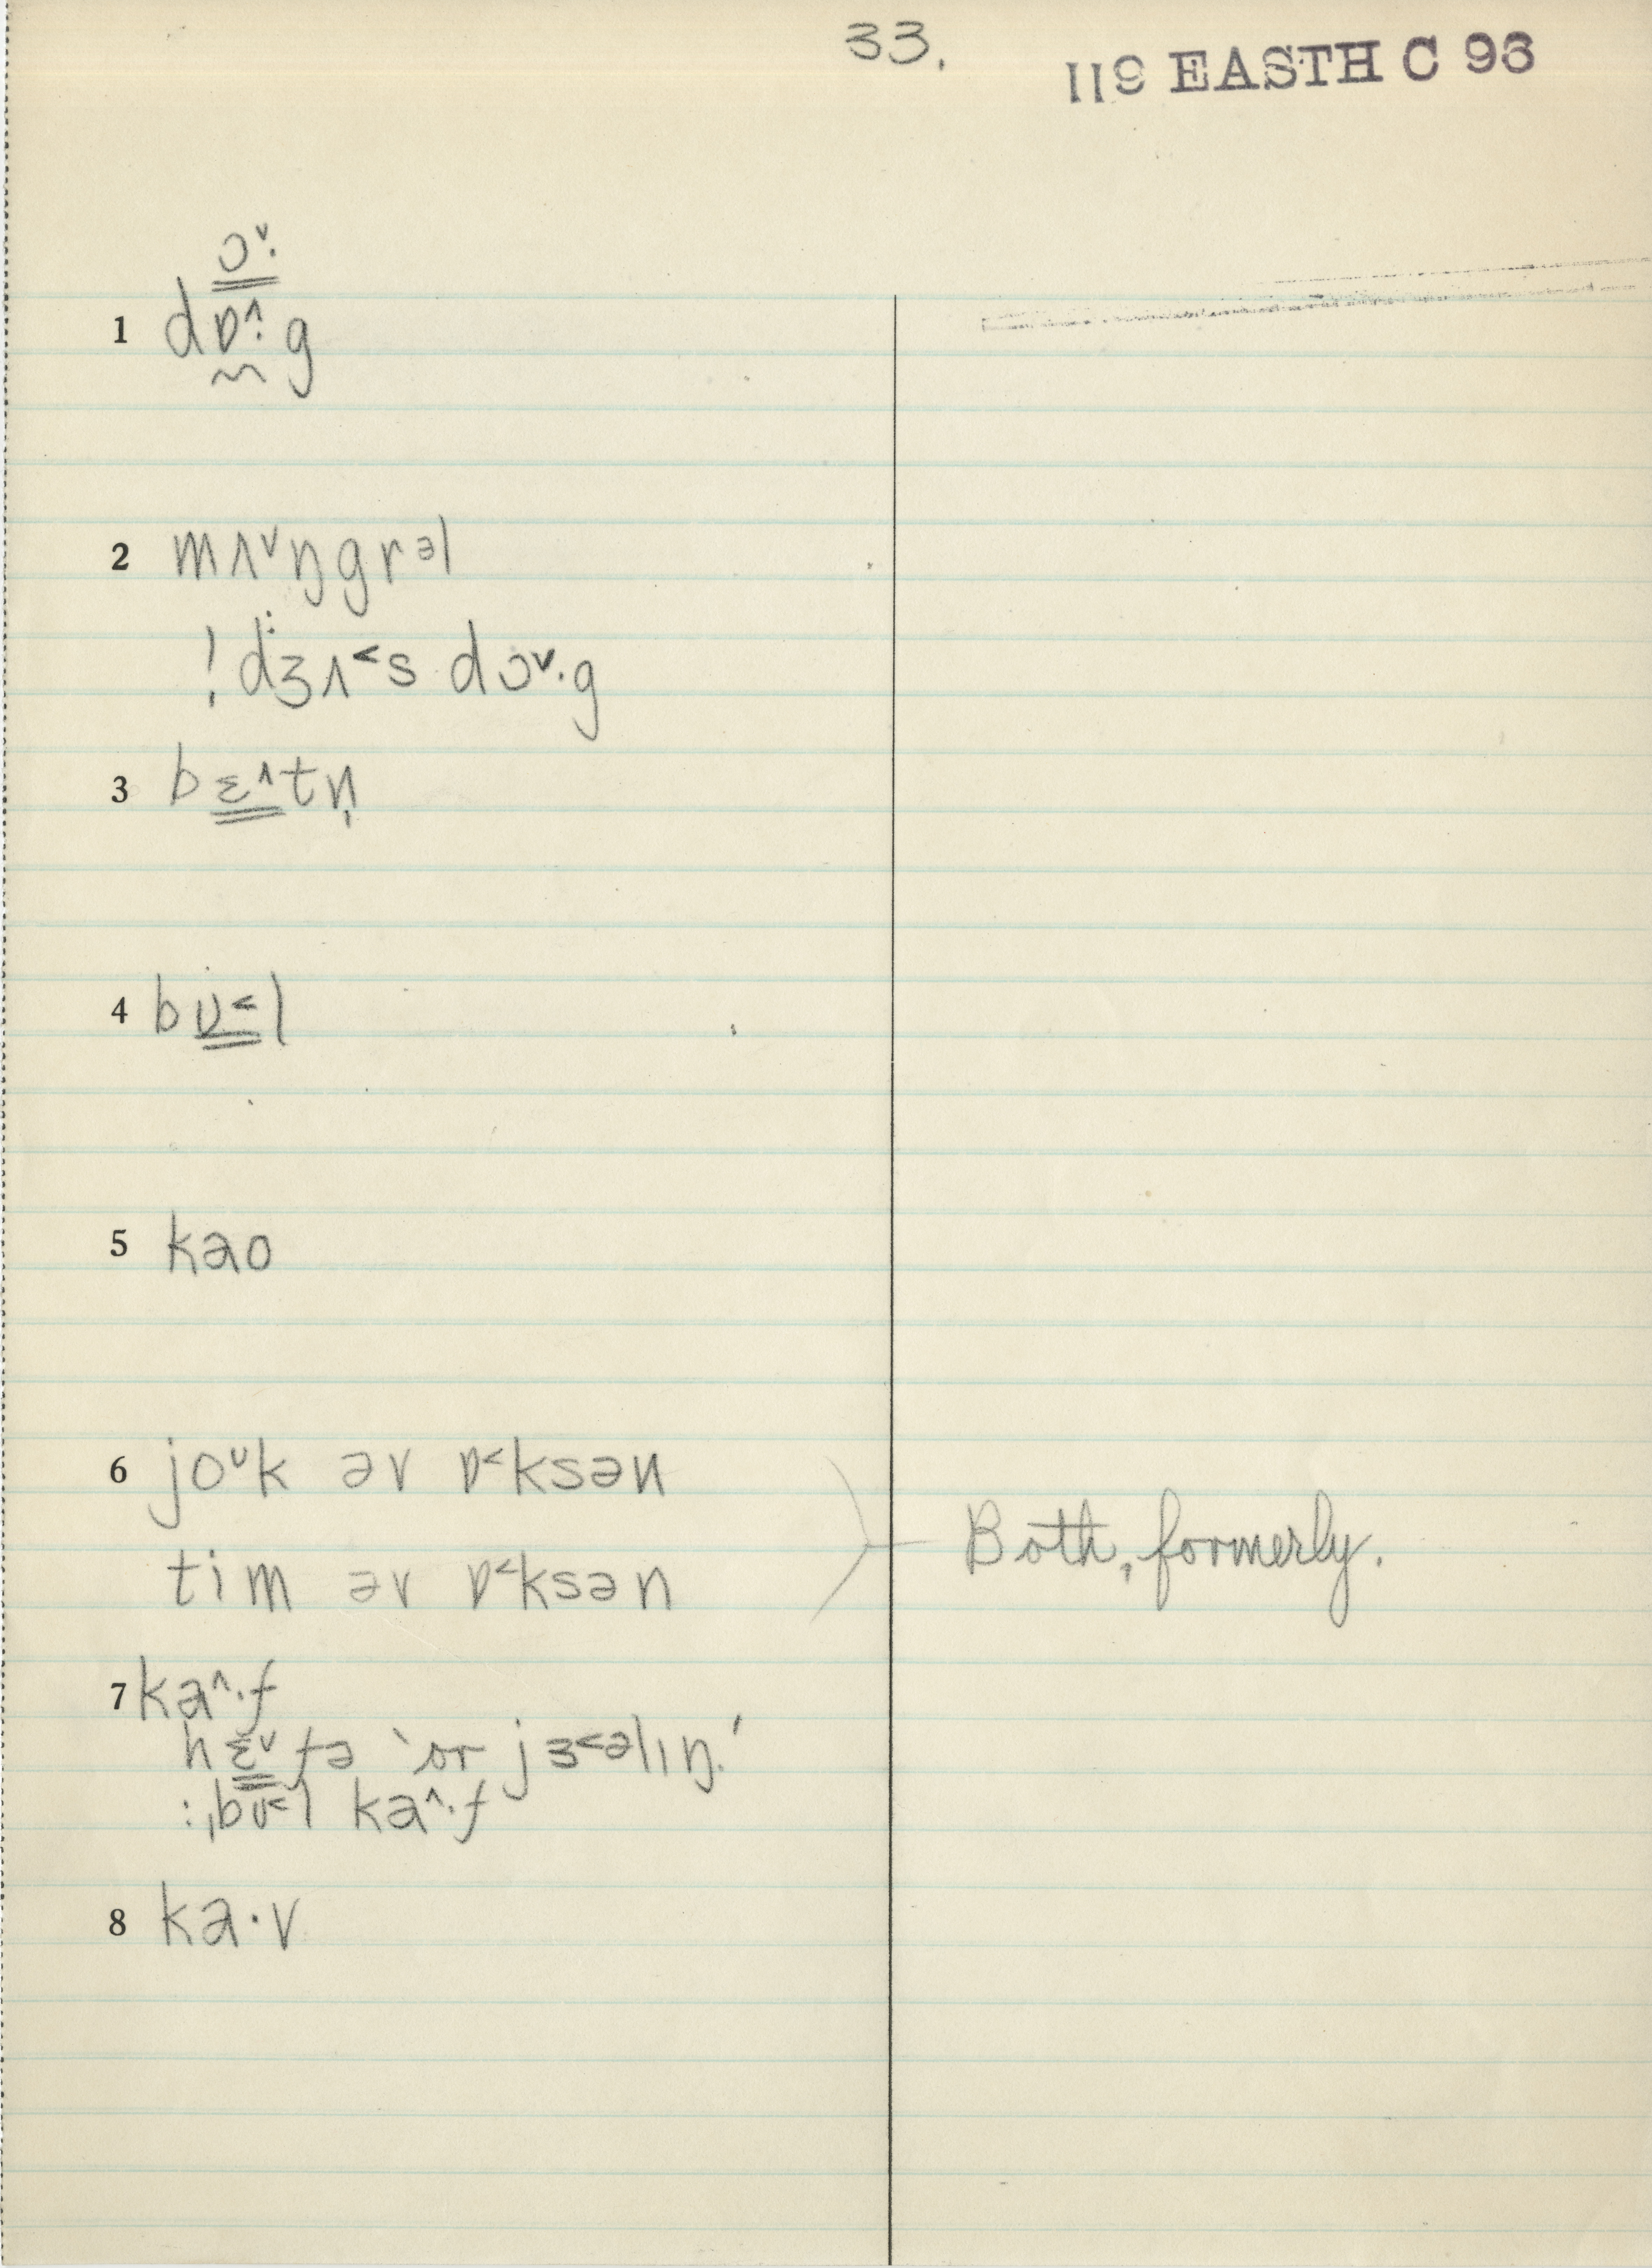 33.
119 EASTH C 96
ɔ˅·
1 dɒ^·g
2 mʌ˅ŋgrəl
! dʒʌ˂s dɔ˅·g
3 bɛ^tn̩
4 bʊ˂l
5 kao
6 jo˅k əv ɒ˂ksən
tim əv ɒ˂ksən
Both, formerly.
7 ka^·f
hɛ˅fə 'or jɜ˂əlɪŋ.'
:ˌbʊ˂l ka^·f
8 ka·v